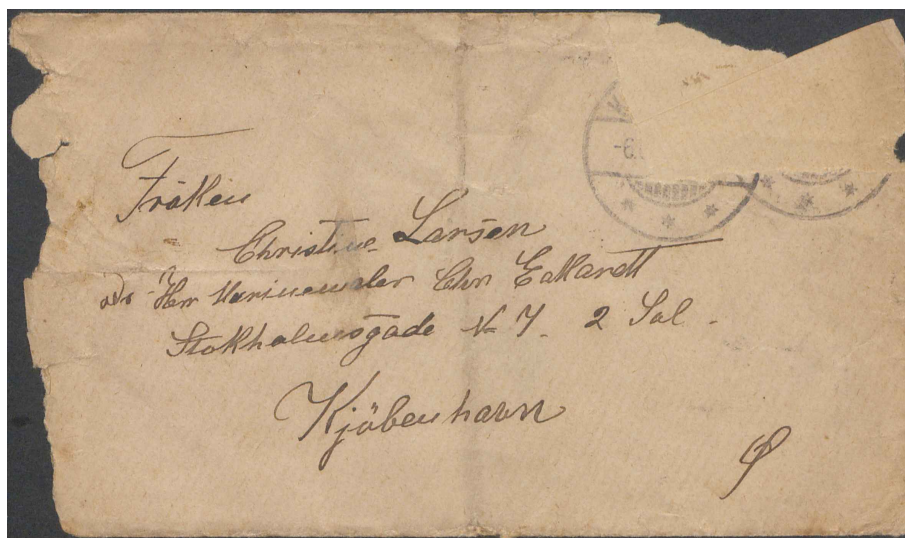 -6.
Fröken
Christine Larsen
Adr Herr Marinemaler Chr Eckardt
Stokholmsgade No 7. 2 Sal.
Kjöbenhavn
Ø